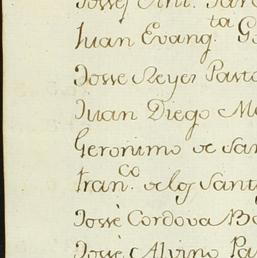 Jossej Ant.
Juan Evang.ta G
Josse Reyes Pasto
Juan Diego Me
Geronimo de San
Fran.co de los Sant
Jossè Cordova Ba
Jossè Alvino Pa